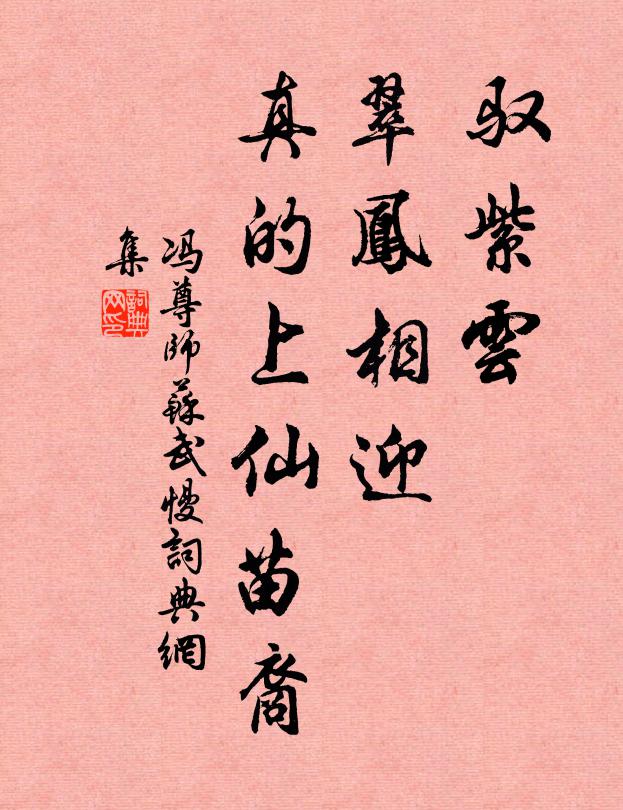 驭紫雲
翠鳳相迎
真的上仙苗裔
冯尊師蘇武慢詞典網
集
詞典
网印